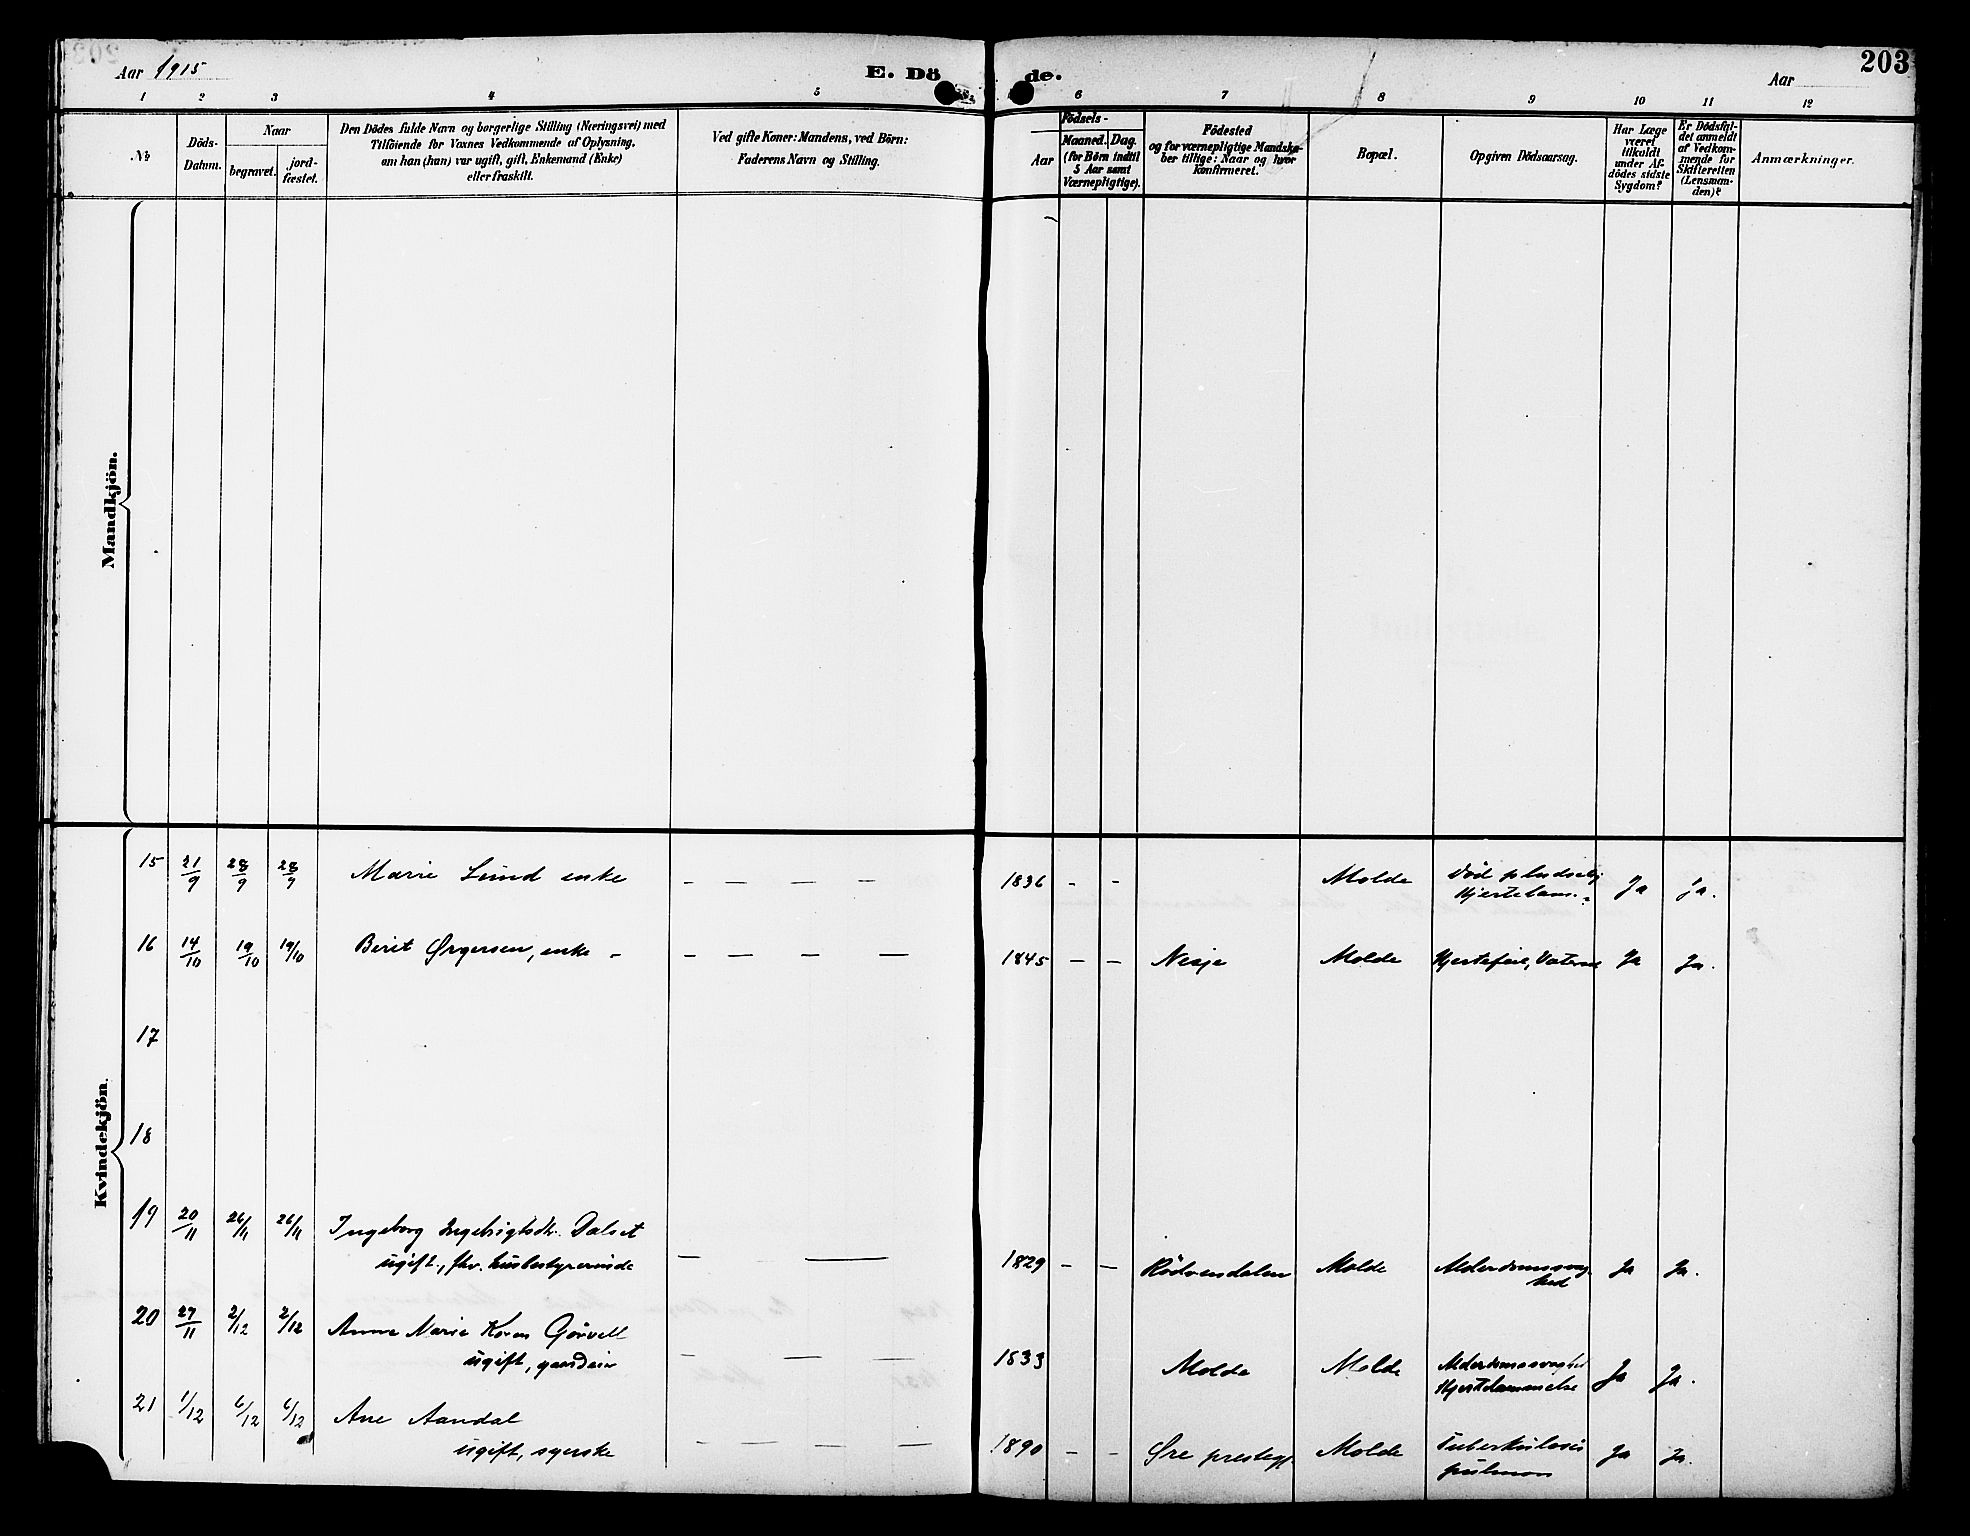 Aar 1915
E. Dö
de.
Aar
203
1 2 3 4 5 6 7 8 9 10 11 12
No
Döds-
Datum.
Naar
begravet.
jord-
fæstet.
Den Dödes fulde Navn og borgerlige Stilling (Næringsvei) med
Tilföiende for Voxnes Vedkommende af Oplysning,
om han (hun) var ugift, gift, Enkemand (Enke)
eller fraskilt.
Ved gifte Koner: Mandens, ved Börn:
Faderens Navn og Stilling.
Födsels-
Aar
Maaned. Dag.
(for Börn indtil
5 Aar samt
Værnepligtige).
Födested
og for værnepligtige Mandska-
ber tillige: Naar og hvor
konfirmeret.
Bopæl.
Opgiven Dödsaarsag.
Har Læge
været
tilkaldt
under Af-
dödes sidste
Sygdom?
Er Dödsfal-
det anmeldt
af Vedkom-
mende for
Skifteretten
(Lensman-
den)?
Anmærkninger.
Mandkjön.
Kvindekjön.
15 21/9 28/9 28/9 Marie Lund enke – – – – 1836 – – Molde Død pludselig Ja Ja.
Hjertelam.
16 14/10 19/10 19/10 Berit Ørgersen, enke – – – – – 1845 – – Nesje Molde Hjertefeil, Ja Ja.
17
18
19 20/11 26/11 26/11 Ingeborg Engebrigtsdtr. Dalset
ugift, fhv. husbestyrerinde – — 1829 – – Rødvendalen Molde Alderdomssvag- Ja Ja.
hed
20 27/11 2/12 2/12 Anne Marie Koren Gørvell
ugift, gaardeier – – – 1833 Molde Molde Alderdomssvaghed Ja Ja.
Hjertelammelse
21 1/12 6/12 6/12 Ane Aandal
ugift, syerske – – – – 1890 – – Øre prestegj. Molde Tuberkulosis Ja Ja.
pulmon